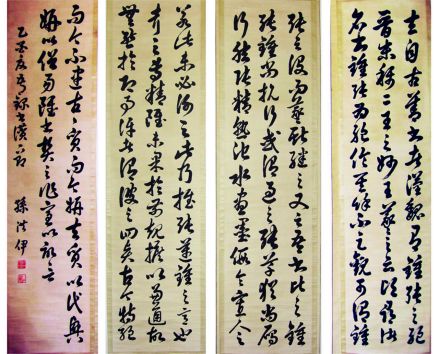 夫自古善書者漢魏有鍾張之絕
晉末稱二王之妙王羲之云頃尋諸
名書鍾張信為絕倫其餘不足觀可謂鍾
張云沒而羲獻繼之又云吾書比之鍾
張鍾當抗行或謂過之張草猶當雁
行然張精熟池水盡墨假令寡人
若此未必謝之此乃推張邁鍾之意也
考其專擅雖未果於前規摭以兼通故
無慚於即事評者謂彼之四賢古今特絕
而今不逮古古質而今妍夫質以代興
妍以俗易雖書契之作適以記言
書譜一節
孫洪伊